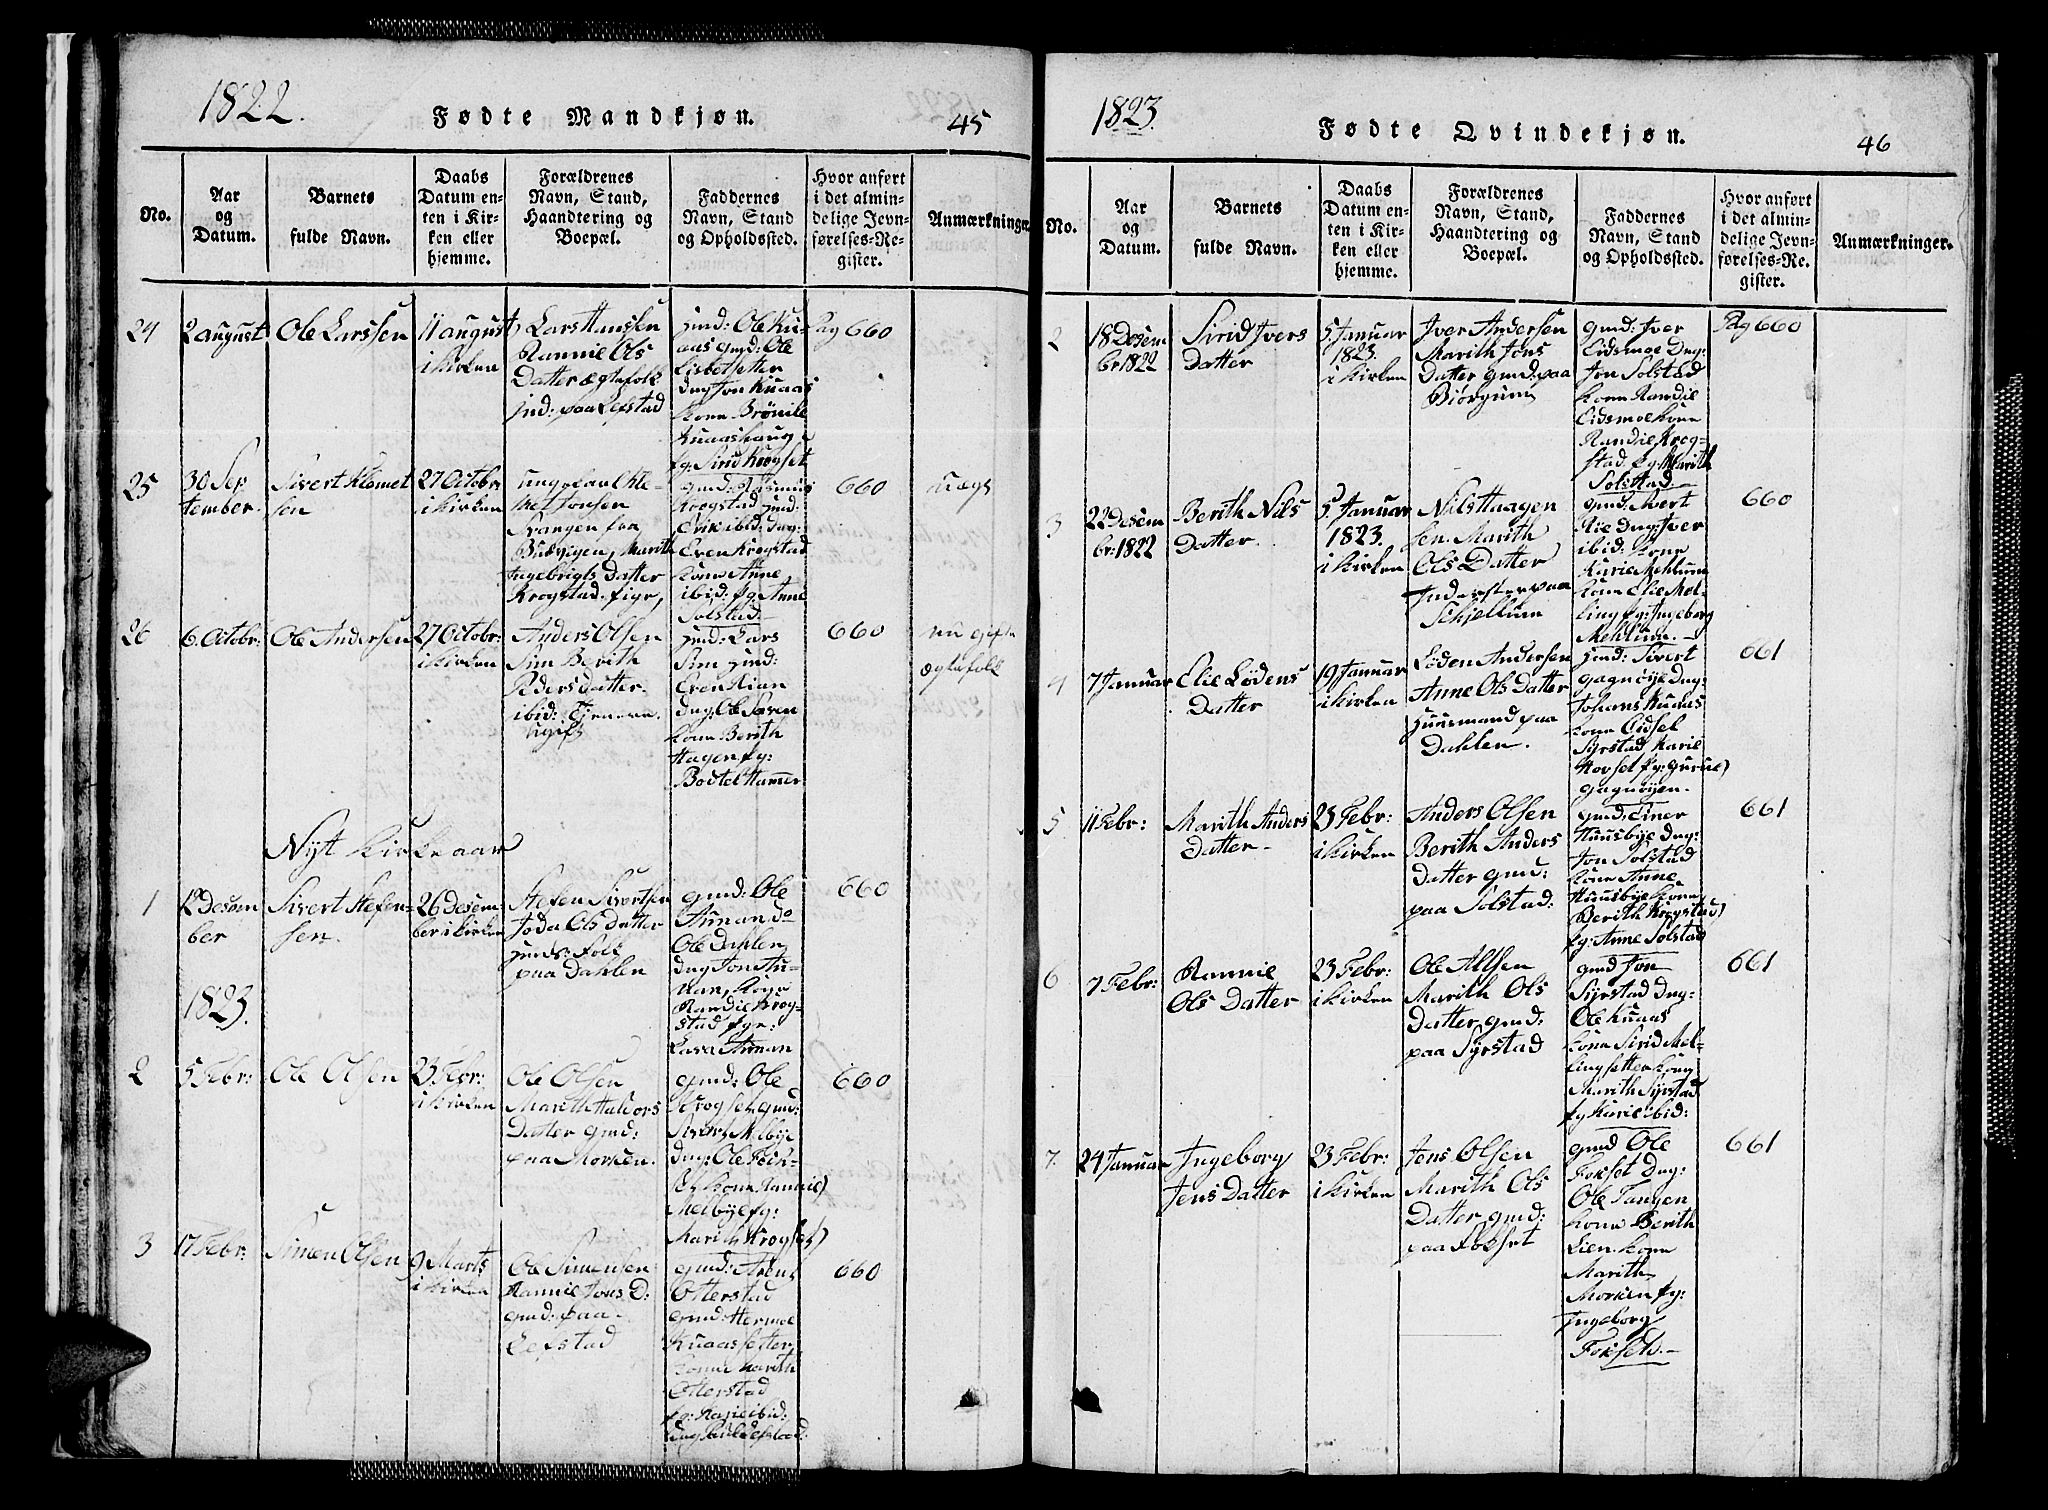 1822.
Fødte Mandkjøn.
45
No.
Aar
og
Datum.
Barnets
fulde Navn.
Daabs
Datum en-
ten i Kir-
ken eller
hjemme.
Forældrenes
Navn, Stand,
Haandtering og
Boepæl.
Faddernes
Navn, Stand
og Opholdssted.
Hvor anført
i det almin-
delige Jevn-
førelses-Re-
gister.
Anmærkninger.
24
2 august
Ole Larssen
11 august
i kirken
Lars Hanssen
Rannie Ols
Datter ægtefolk
jnd: paa Lefstad
Hmd: Ole Ku-
aas gmd: Ole
Lisbetsetter
dug Jon Kuaas
kone Brønile
Kuaashaug
pg: Sirid Krogset
Pag 660
25
30 Sep
tember.
Sivert Klomet
sen
27 Octobr
i kirken
ungkarl Kle-
met Jonsen
Svangen fra
Budvigen, Marith
Ingebrigts Datter
Krogstad. pige,
gmd: Rasmus
Krogstad Hmd:
Erik ibid: dug:
Even Krogstad
kone Anne
ibid: pg: Anne
Solstad.
660
uægt
26
6. Octobr:
Ole Andersen
27 Octobr:
i kirken
Anders Olsen
Sim Berith
Peders datter.
ibid: Tjenene.
ugift
Hmd: Lars
Sim Hmd:
Even Lian
dug: Ole Soren
kone Berith
Hagen pg:
Bodtel Hammer
660
nu gifte
ægtefolk
Nyt Kirkeaar
1
12 Desem
ber
Sivert Stefen-
sen.
26 Desem:
ber i kirken
Stefen Sivertsen
Joda Ols datter
huus: folk
paa Dahlen
gmd: Ole
Aunan do
Ole Dahlen
dug Jon Au-
nan, kone
Randie Krog-
stad pge:
Lava Aunan
660
1823.
2
5 Febr:
Ole Olsen
23. Febr:
i kirken
Ole Olsen
Marith Haldors
Datter gmd:
paa Morken.
gmd: Ole
Krogset gmd:
Sivert Melbye
dug: Ole Fock-
set kone Rannie
Melbye pg:
Marith Krogset
660
3
17 Febr:
Simen Olsen
9 Marts
i kirken
Ole Simensen
Rannie Jons D:
gmd: paa
Lefstad
gmd: Arent
Otterstad
gmd: Hermoe
Kuaassetter,
kone Marith
Otterstad
pg: Karie ibid:
660
1823.
Fødte Qvindekjøn.
46
No.
Aar
og
Datum.
Barnets
fulde Navn.
Daabs
Datum en-
ten i Kir-
ken eller
hjemme.
Forældrenes
Navn, Stand,
Haandtering og
Boepæl.
Faddernes
Navn, Stand
og Opholdssted.
Hvor anført
i det almin-
delige Jevn-
førelses-Re-
gister.
Anmærkninger.
2
18 Desem
br: 1822
Sirid Ivers
Datter
5. Januar
1823.
i kirken
Iver Andersen
Marith Jons
Datter gmd: paa
Biørgum
gmd: Iver
Eidsmoe Dug:
Jon Solstad
kone Randie
Eidsmoe kone
Randie Krog-
stad pg Marith
Solstad.
Pag 660
3
22 Desem
br: 1822
Berith Nils
Datter.
5. Januar
1823.
i kirken
Nils Haagen
sen. Marith
Ols Datter
Inderster paa
Skjellum
gmd: Mert
Rie Dug: Iver
ibid: kone
Karie Mehlum
kone Elie Mel-
ling pg: Ingeborg
Mehlum.
660
4
7 Januar
Elie Lødens
Datter
19 Januar
i kirken
Løden Andersen
Anne Ols Datter
Huusmand paa
Dahlen.
Hmd: Sivert
Gagnøye Dug:
Johans Kuaas
kone Eidsel
Syrstad Karie
Horset pg: Guruie
Gagnøyen.
661
5
11 Febr:
Marith Anders
Datter
23 Febr:
i kirken
Anders Olsen
Berith Anders
Datter gmd:
paa Solstad:
gmd: Einer
Huusbye Dug:
Jon Solstad
kone Anne
Huusbye kone
Berith Krogstad
pg: Anne Solstad
661
6
7 Febr:
Rannie
Ols Datter
23 Febr:
i kirken
Ole Altsen
Marith Ols
Datter gmd:
paa Syrstad
gmd Jon
Syrstad Dug:
Ole Kuaas
kone Sirid Mel-
lingsetter kone
Marith Syrstad
pg Karie ibid:
661
7.
24 Januar
Ingeborg
Jens Datter
23 Febr:
i kirken
Jens Olsen
Marith Ols
Datter gmd:
paa Fokset
gmd Ole
Fokset Dug:
Ole Tangen
kone Berith
Lien. kone
Marith
Morken pg:
Ingeborg
Fokset.
661